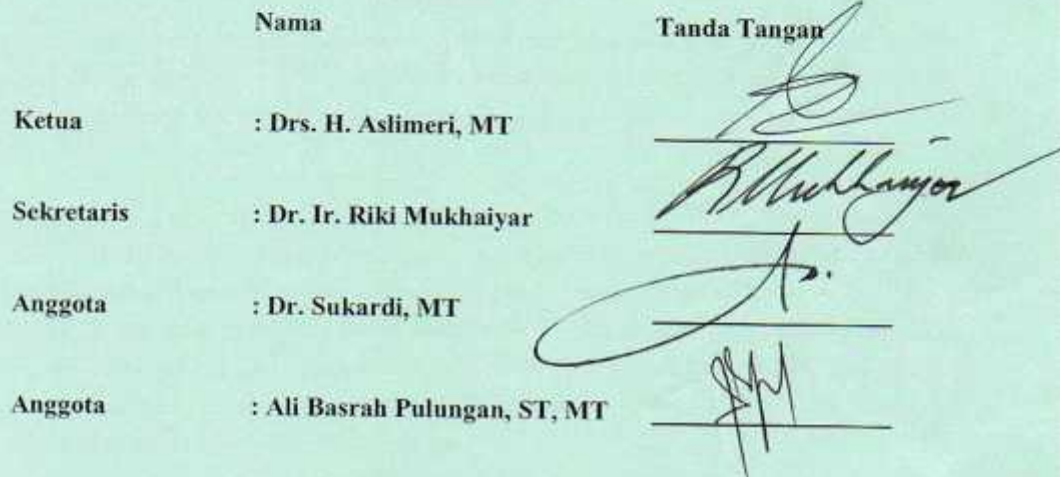 Nama Tanda Tangan
Ketua : Drs. H. Aslimeri, MT
Sekretaris : Dr. Ir. Riki Mukhaiyar
Anggota : Dr. Sukardi, MT
Anggota : Ali Basrah Pulungan, ST, MT